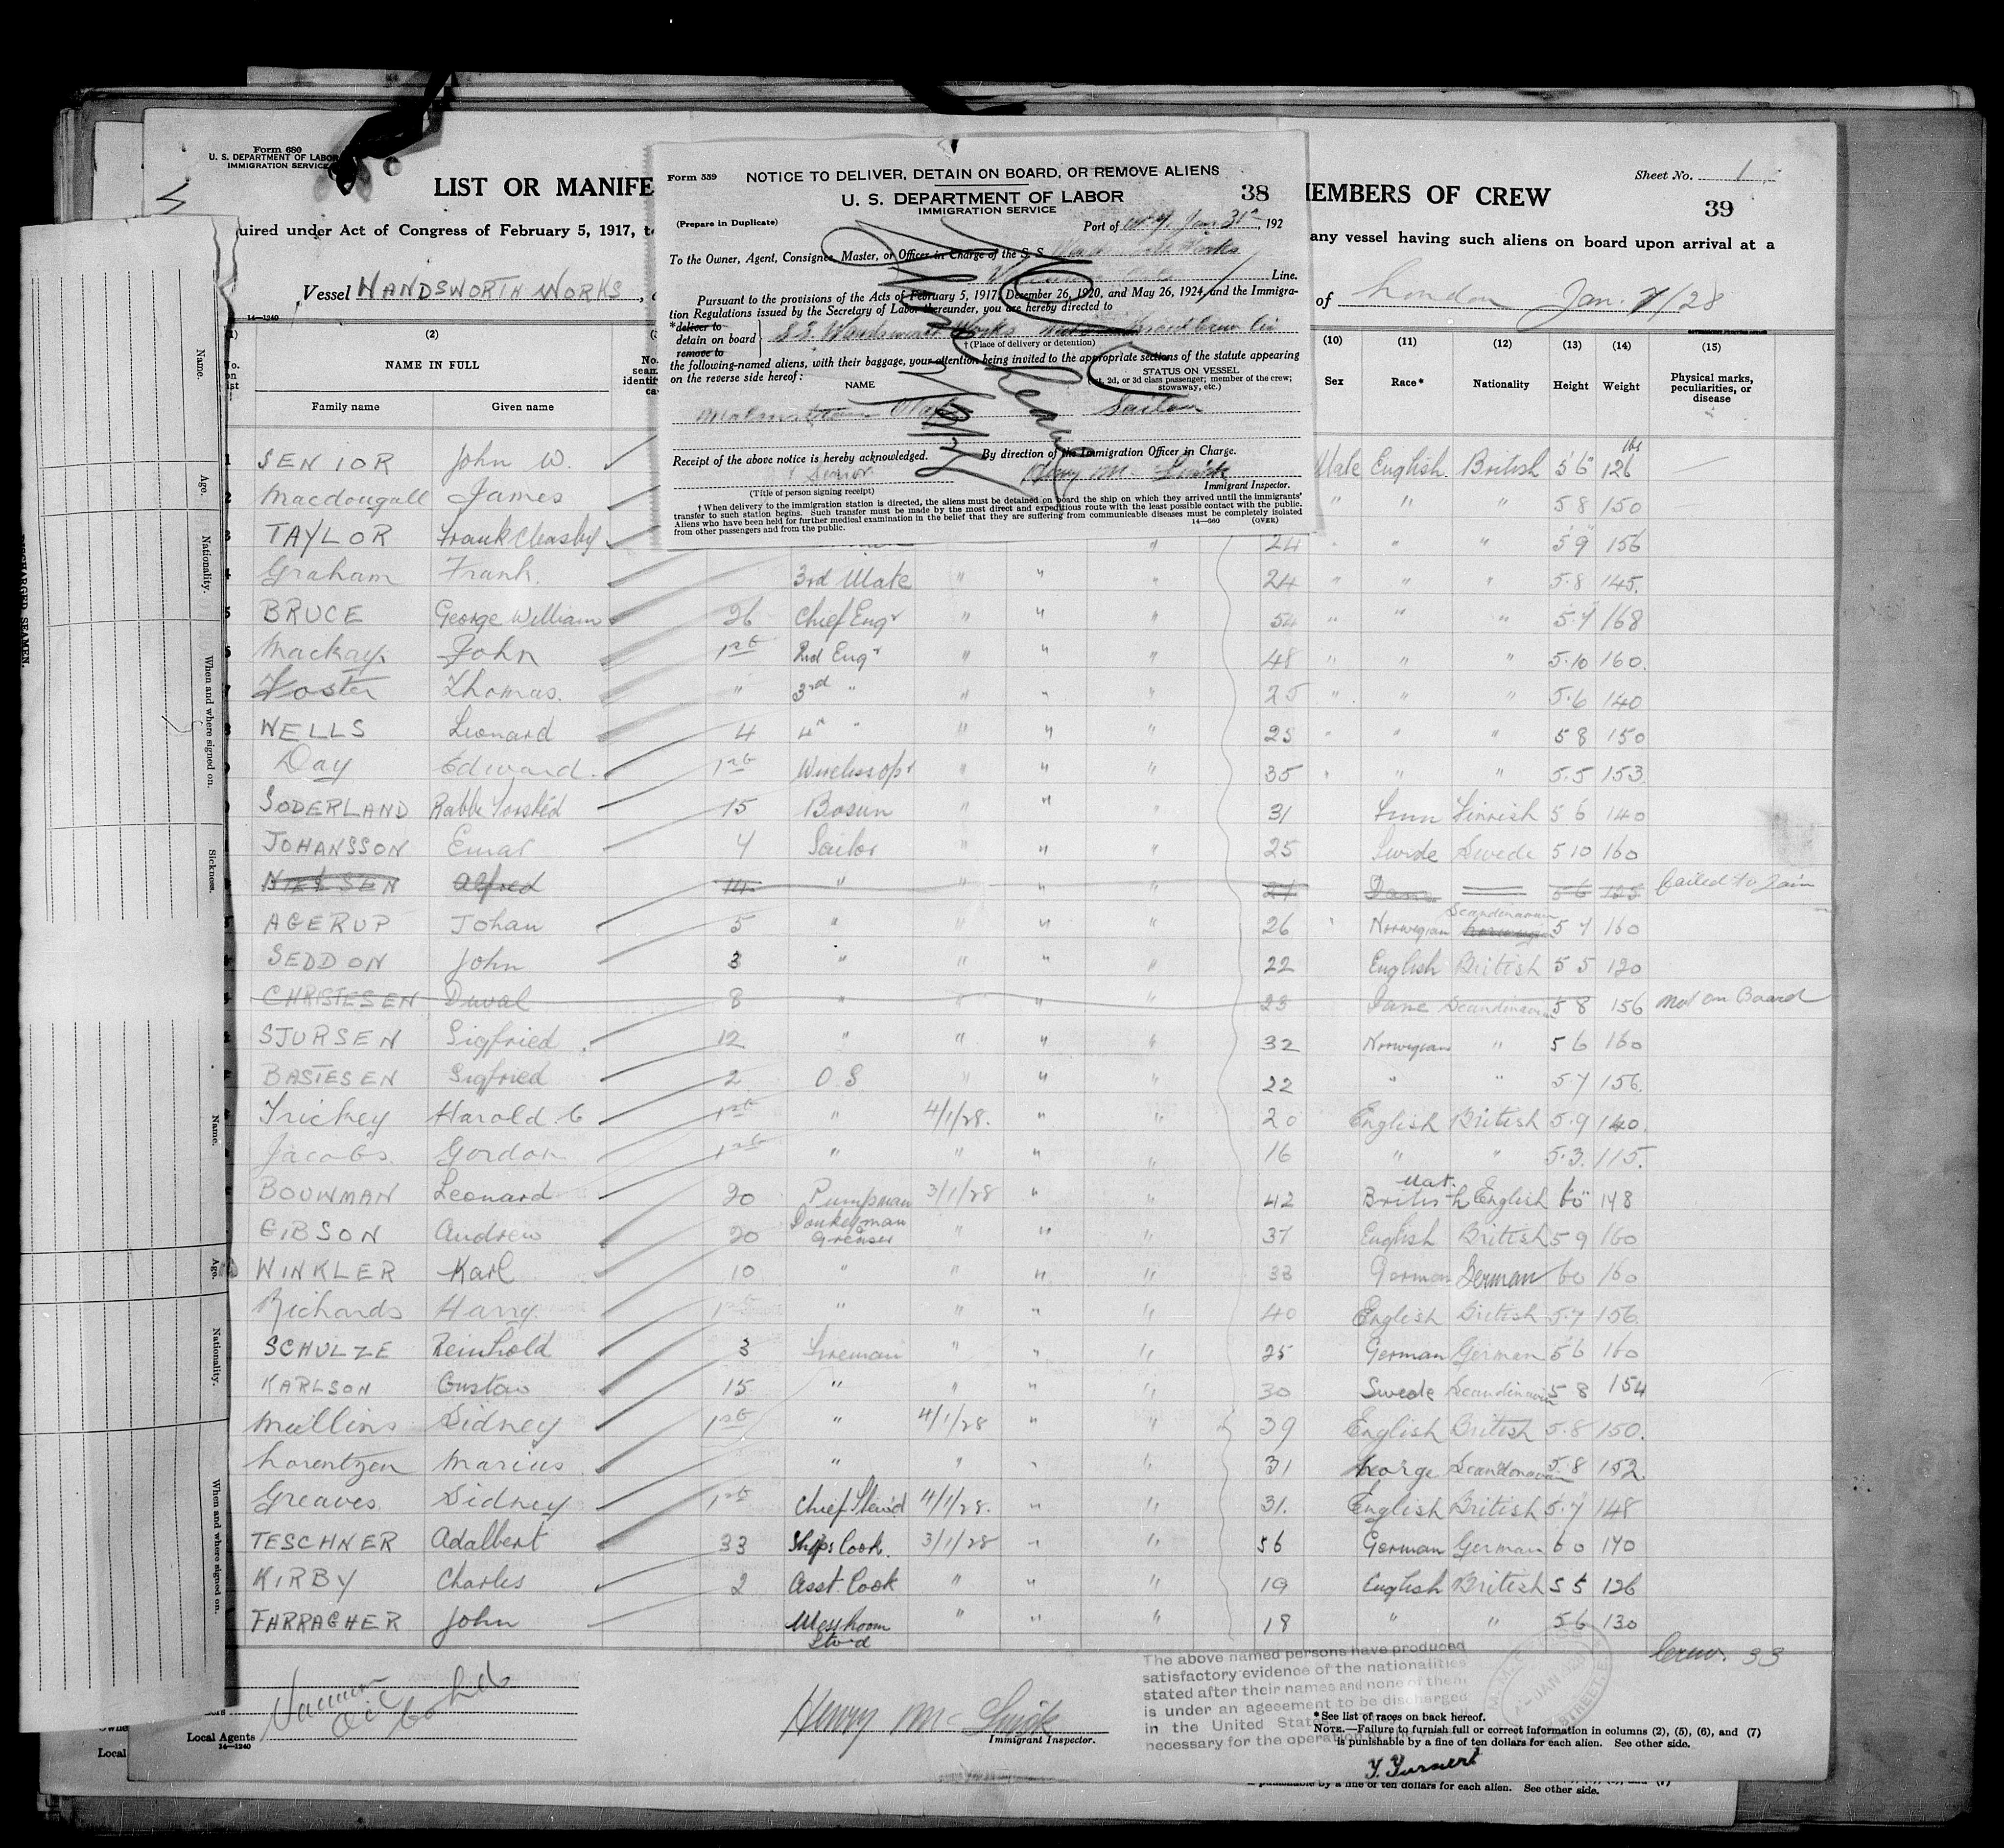 Form 680
U. S. DEPARTMENT OF LABOR
IMMIGRATION SERVICE
LIST OR MANIFE
EMBERS OF CREW
Sheet No. 1
39
uired under Act of Congress of February 5, 1917, t
any vessel having such aliens on board upon arrival at a
Vessel WANDSWORTH WORKS
of London Jan. 7/28
14—1240
Form 559
NOTICE TO DELIVER, DETAIN ON BOARD, OR REMOVE ALIENS
U. S. DEPARTMENT OF LABOR
38
IMMIGRATION SERVICE
(Prepare in Duplicate)
Port of N.Y. Jan 31st, 192
To the Owner, Agent, Consignee, Master, or Officer in Charge of the S. S. Works
Line.
Pursuant to the provisions of the Acts of February 5, 1917, December 26, 1920, and May 26, 1924, and the Immigra-
tion Regulations issued by the Secretary of Labor thereunder, you are hereby directed to
*deliver to
detain on board
remove to
S.S. Wandsworth Works
† (Place of delivery or detention)
the following-named aliens, with their baggage, your attention being invited to the appropriate sections of the statute appearing
on the reverse side hereof:
NAME
STATUS ON VESSEL
(1st, 2d, or 3d class passenger; member of the crew; stowaway, etc.)
Olaf Sailor
Receipt of the above notice is hereby acknowledged.
By direction of the Immigration Officer in Charge.
Senior
Henry Mc
(Title of person signing receipt)
Immigrant Inspector.
† When delivery to the immigration station is directed, the aliens must be detained on board the ship on which they arrived until the immigrants'
transfer to such station begins. Such transfer must be made by the most direct and expeditious route with the least possible contact with the public.
Aliens who have been held for further medical examination in the belief that they are suffering from communicable diseases must be completely isolated
from other passengers and from the public.
14—560
(OVER)
(1) (2) (10) (11) (12) (13) (14) (15)
No. on list
NAME IN FULL
Family name Given name
Sex Race* Nationality Height Weight Physical marks, peculiarities, or disease
1 SENIOR John W. Male English British 5'6" 126 lbs
2 Macdougall James " " " 5 8 150
3 TAYLOR Frank Cleasby " 24 " " " 5'9" 156
4 Graham Frank. 3rd Mate " " " 24 " " " 5.8 145.
5 BRUCE George William 26 Chief Engr " " " 54 " " " 5.7 168
6 Mackay John 1st 2nd Engr " " " 48 " " " 5.10 160.
7 Foster Thomas. " 3rd " " " " 25 " " " 5.6 140
8 WELLS Leonard 4 4th " " " " 25 " " " 5 8 150
Day Edward. 1st Wireless opr " " " 35 " " " 5.5 153
SODERLAND Rabbe 15 Bosun " " " 31 Finn Finnish 5 6 140
JOHANSSON Emar 4 Sailor " " " 25 Swede Swede 5 10 160
NIELSEN Alfred 14 " " " " 21 Dane 5 6 failed to Join
AGERUP Johan 5 " " " " 26 Norwegian Scandinavian 5 7 160
SEDDON John 3 " " " " 22 English British 5 5 120
CHRISTESEN Duval 8 " " " " 23 Dane Scandinavian 5 8 156 Not on Board
SJURSEN Sigfried 12 " " " " 32 Norwegian " 5 6 160
BASTESEN Sigfried 2 O.S " " " 22 " " 5.7 156.
Trickey Harold C 1st " 4/1/28. " " 20 English British 5.9 140.
Jacobs. Gordon 1st " " " " 16 " " 5.3. 115.
BOUWMAN Leonard 20 Pumpman 3/1/28 " " 42 Nat. British English 6'0" 148
GIBSON Andrew 20 Donkeyman Greaser " " " 37 English British 5 9 160
WINKLER Karl 10 " " " " 33 German German 6 0 160
Richards Harry. 1st " " " " 40 English British 5.7 156.
SCHULZE Reinhold 3 Fireman " " " 25 German German 5 6 160
KARLSON Gustav 15 " " " " 30 Swede Scandinavian 5 8 154
Mullins Sidney 1st " 4/1/28 " " 39 English British 5.8 150.
Lorentzen Marius " " " " 31 Norge Scandinavian 5.8 152.
Greaves. Sidney 1st Chief Stew'd 4/1/28. " " 31. English British 5.7 148
TESCHNER Adalbert 33 Ships Cook. 3/1/28 " " 56 German German 6 0 170
KIRBY Charles 2 Asst. Cook " " " 19 English British 5 5 126
FARRAGHER John Mess Room Stw'd " " " 18 " " 5 6 130
Crew. 33
The above named persons have produced
satisfactory evidence of the nationalities
stated after their names and none of them
is under an ageeement to be discharged
in the United States
necessary for the operation
Oil Co Ltd
Local Agents
14—1240
Henry Mc
Immigrant Inspector.
*See list of races on back hereof.
NOTE.—Failure to furnish full or correct information in columns (2), (5), (6), and (7)
is punishable by a fine of ten dollars for each alien. See other side.
is punishable by a fine of ten dollars for each alien. See other side.
Local
Name.
Age.
Nationality.
When and where signed on.
Sickness.
Name.
Age.
Nationality.
When and where signed on.
DISCHARGED SEAMEN.